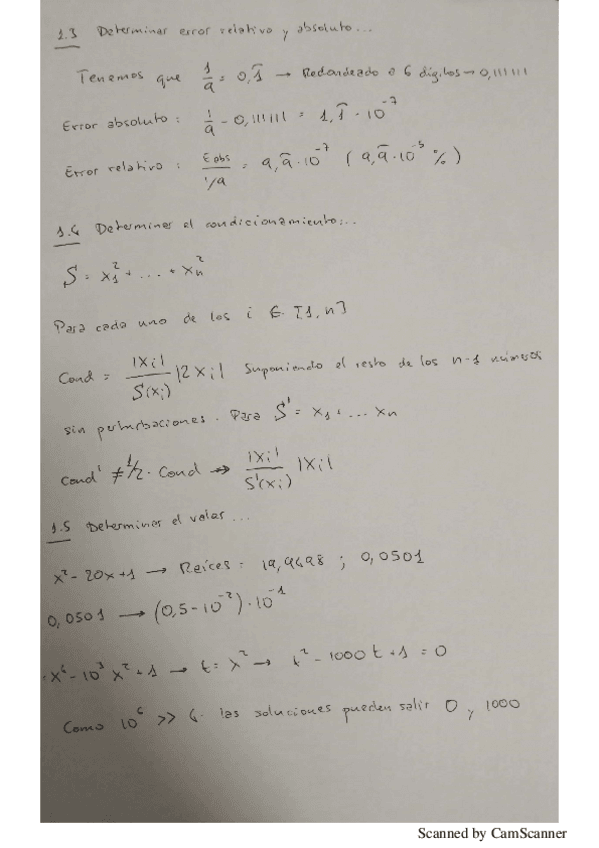 1.3 Determinar error relativo y absoluto...
Tenemos que 1/9 = 0,1̂ → Redondeado a 6 dígitos → 0,111111
Error absoluto: 1/9 - 0,111111 = 1,1̂ · 10^-7
Error relativo: Eabs / 1/9 = 9,9̂ · 10^-7 (9,9̂ · 10^-5 %)
1.4 Determinar el condicionamiento...
S = x₁² + ... + xₙ²
Para cada uno de los i ∈ [1, n]
Cond = |xi| / S(xi) |2xi| Suponiendo el resto de los n-1 números
sin perturbaciones. Para S' = x₁ + ... xₙ
Cond' ≠ 1/2 · Cond → |xi| / S'(xi) |xi|
1.5 Determinar el valor...
x² - 20x + 1 → Raíces = 19,9498 ; 0,0501
0,0501 → (0,5 - 10^-2) · 10^-1
x⁴ - 10³ x² + 1 → t = x² → t² - 1000 t + 1 = 0
Como 10⁶ >> 4 · las soluciones pueden salir 0 y 1000
Scanned by CamScanner